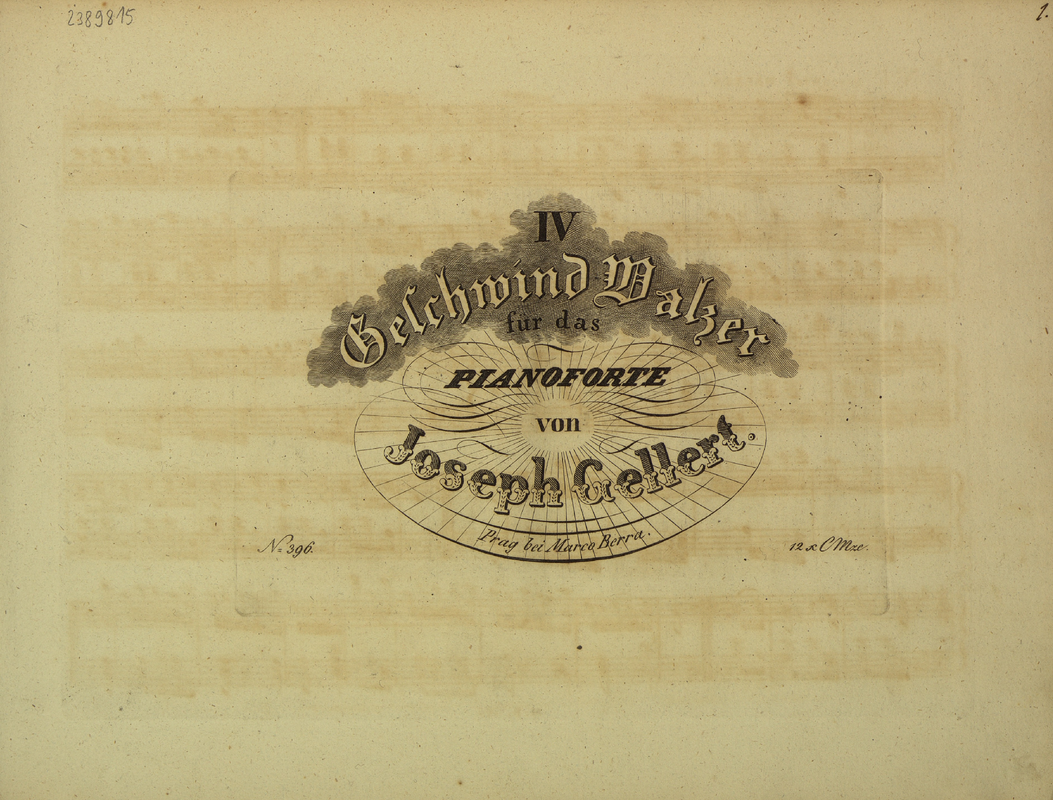 2389815
1.
IV
Geſchwind Walzer
für das
PIANOFORTE
von
Joseph Gellert.
Prag bei Marco Berra.
No 396.
12 x C Mze.